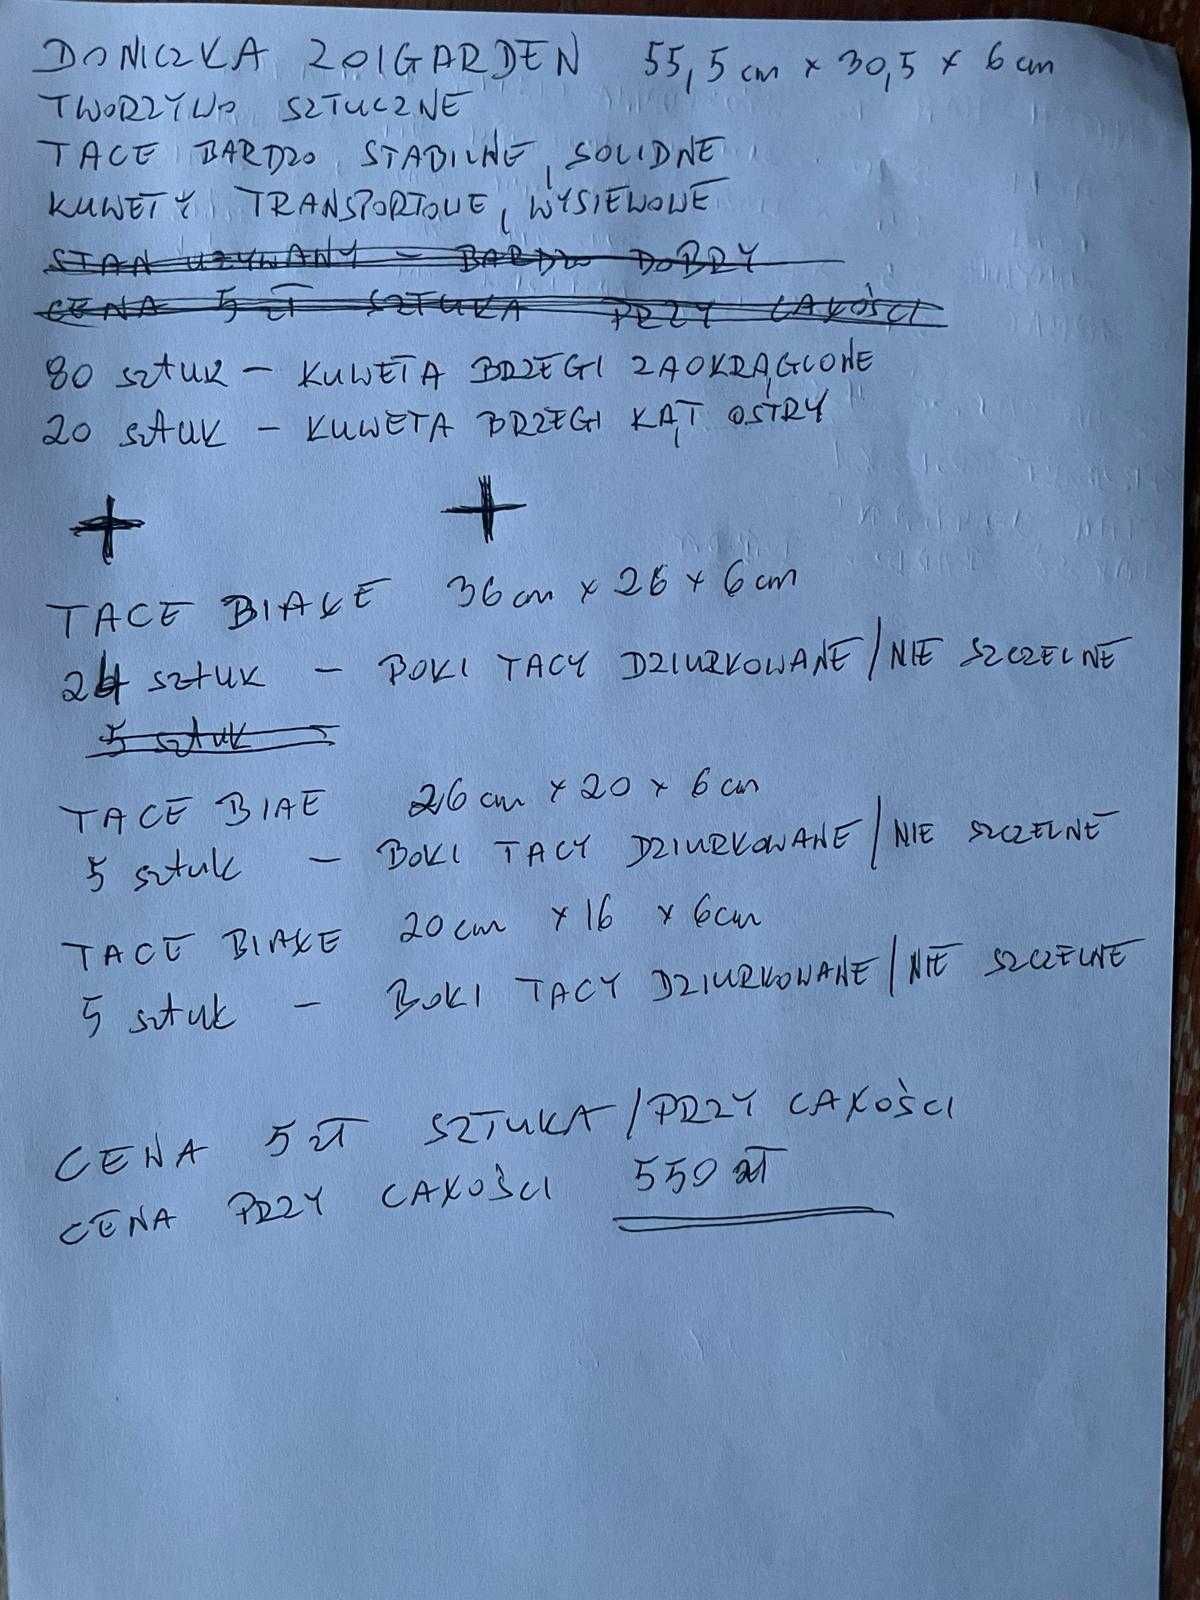 DONICZKA ZOIGARDEN 55,5 cm x 30,5 x 6 cm
TWORZYWO SZTUCZNE
TACE BARDZO STABILNE, SOLIDNE
KUWETY TRANSPORTOWE, WYSIEWOWE
STAN UŻYWANY – BARDZO DOBRY
CENA 5 zł SZTUKA PRZY CAŁOŚCI
80 sztuk – KUWETA BRZEGI ZAOKRĄGLONE
20 sztuk – KUWETA BRZEGI KĄT OSTRY
+ +
TACE BIAŁE 36 cm x 26 x 6 cm
24 sztuk – BOKI TACY DZIURKOWANE / NIE SZCZELNE
5 sztuk
TACE BIAE 26 cm x 20 x 6 cm
5 sztuk – BOKI TACY DZIURKOWANE / NIE SZCZELNE
TACE BIAŁE 20 cm x 16 x 6 cm
5 sztuk – BOKI TACY DZIURKOWANE / NIE SZCZELNE
CENA 5 zł SZTUKA / PRZY CAŁOŚCI
CENA PRZY CAŁOŚCI 550 zł